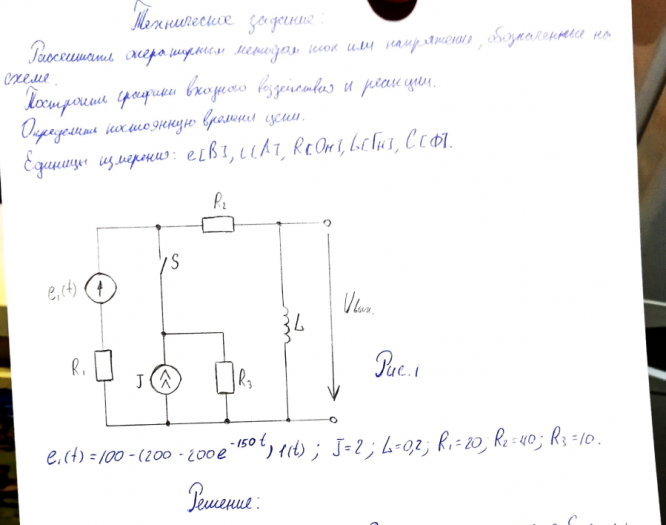 Техническое задание:
Рассчитать операторным методом ток или напряжение, обозначенные на
схеме.
Построить графики входного воздействия и реакции.
Определить постоянную времени цепи.
Единицы измерения: e[В], i[А], R[Ом], L[Гн], C[Ф].
R₂
S
e₁(t)
L
Uвых.
R₁
J
R₃
Рис.1
e₁(t)=100-(200-200e^{-150t})1(t); J=2; L=0,2; R₁=20, R₂=40; R₃=10.
Решение: